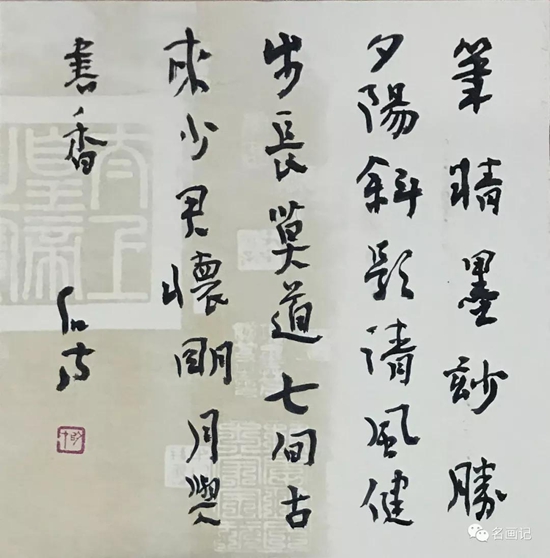 筆精墨妙勝
夕陽斜影清風健
步長莫道七旬古
來少君懷明月與
書香
太上
皇帝
名画记